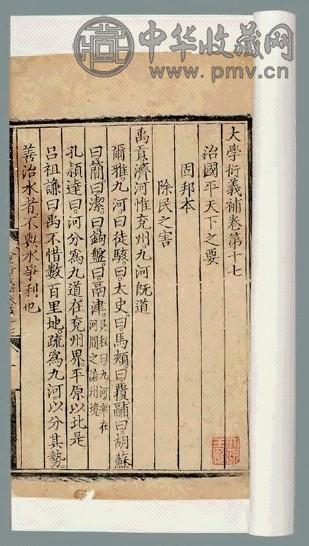 中华收藏网
www.pmv.cn
大學衍義補卷第十七
治國平天下之要
固邦本
除民之害
禹貢濟河惟兖州九河既道
爾雅九河曰徒駭曰太史曰馬頰曰覆鬴曰胡蘇
曰簡曰潔曰鉤盤曰鬲津
孔頴達曰河分為九道在兖州界平原以北是
呂祖謙曰禹不惜數百里地疏為九河以分其勢
善治水者不與水爭利也